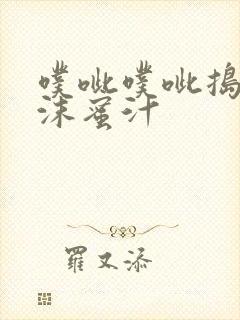 噗呲噗呲搗
沫蜜汁
羅又添